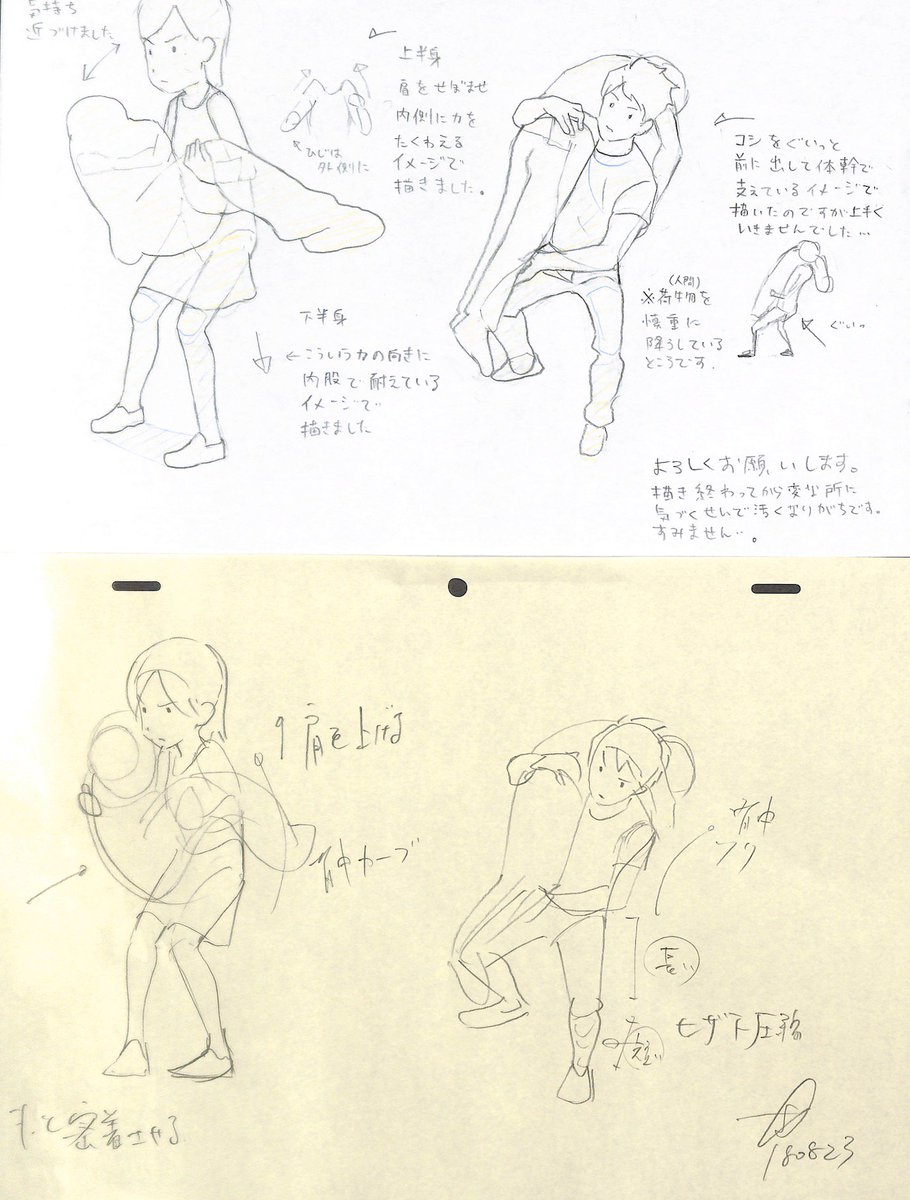 気持ち
近づけました
上半身
肩をせばませ
内側に力を
たくわえる
イメージで
描きました。
ひじは
外側に
コシをぐいっと
前に出して体幹で
支えているイメージで
描いたのですが上手く
いきませんでした…
ぐいっ
(人間)
※荷物を
慎重に
降ろしている
ところです.
下半身
←こういう力の向きに
内股で耐えている
イメージで
描きました
よろしくお願いします。
描き終わってから変な所に
気づくせいで汚くなりがちです。
すみません…。
肩を上げる
背中カーブ
背中
フリ
長い
短い
ヒザ下圧縮
もっと密着させる
180823